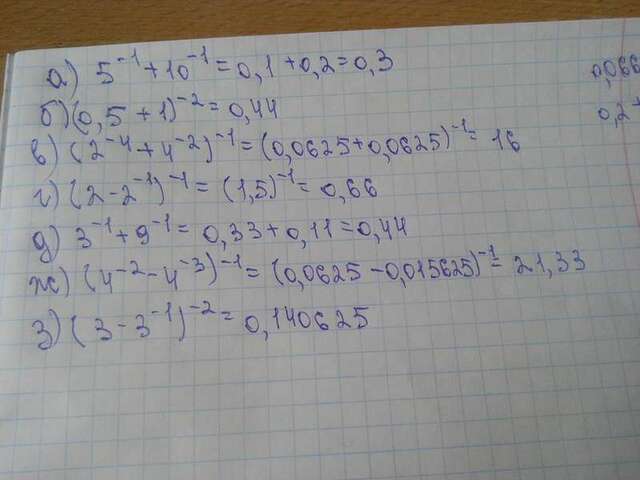 а) 5⁻¹ + 10⁻¹ = 0,1 + 0,2 = 0,3
б) (0,5 + 1)⁻² = 0,44
в) (2⁻⁴ + 4⁻²)⁻¹ = (0,0625 + 0,0625)⁻¹ = 16
г) (2 - 2⁻¹)⁻¹ = (1,5)⁻¹ = 0,66
д) 3⁻¹ + 9⁻¹ = 0,33 + 0,11 = 0,44
ж) (4⁻² - 4⁻³)⁻¹ = (0,0625 - 0,015625)⁻¹ = 21,33
з) (3 - 3⁻¹)⁻² = 0,140625
0,066
0,2 +